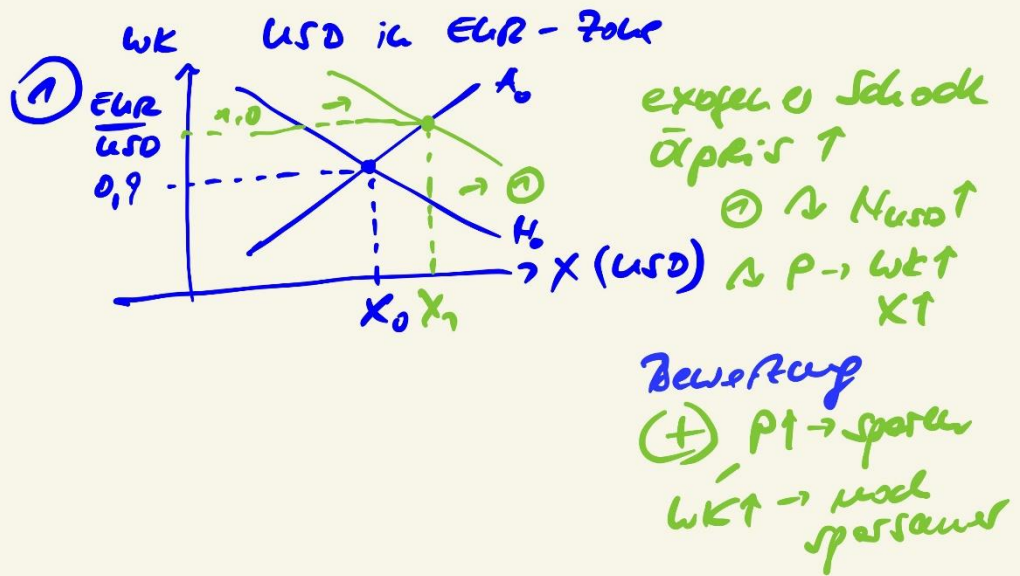 WK USD in EUR-Zone
①
EUR
USD
0,9
1,0
→
A₀
→ ①
N₀
→ X (USD)
X₀ X₁
exogener Schock
Ölpreis ↑
① ↝ N_USD ↑
↝ P → WK↑
X↑
Bewertung
(+) P↑ → sparen
WK↑ → noch
sparsamer